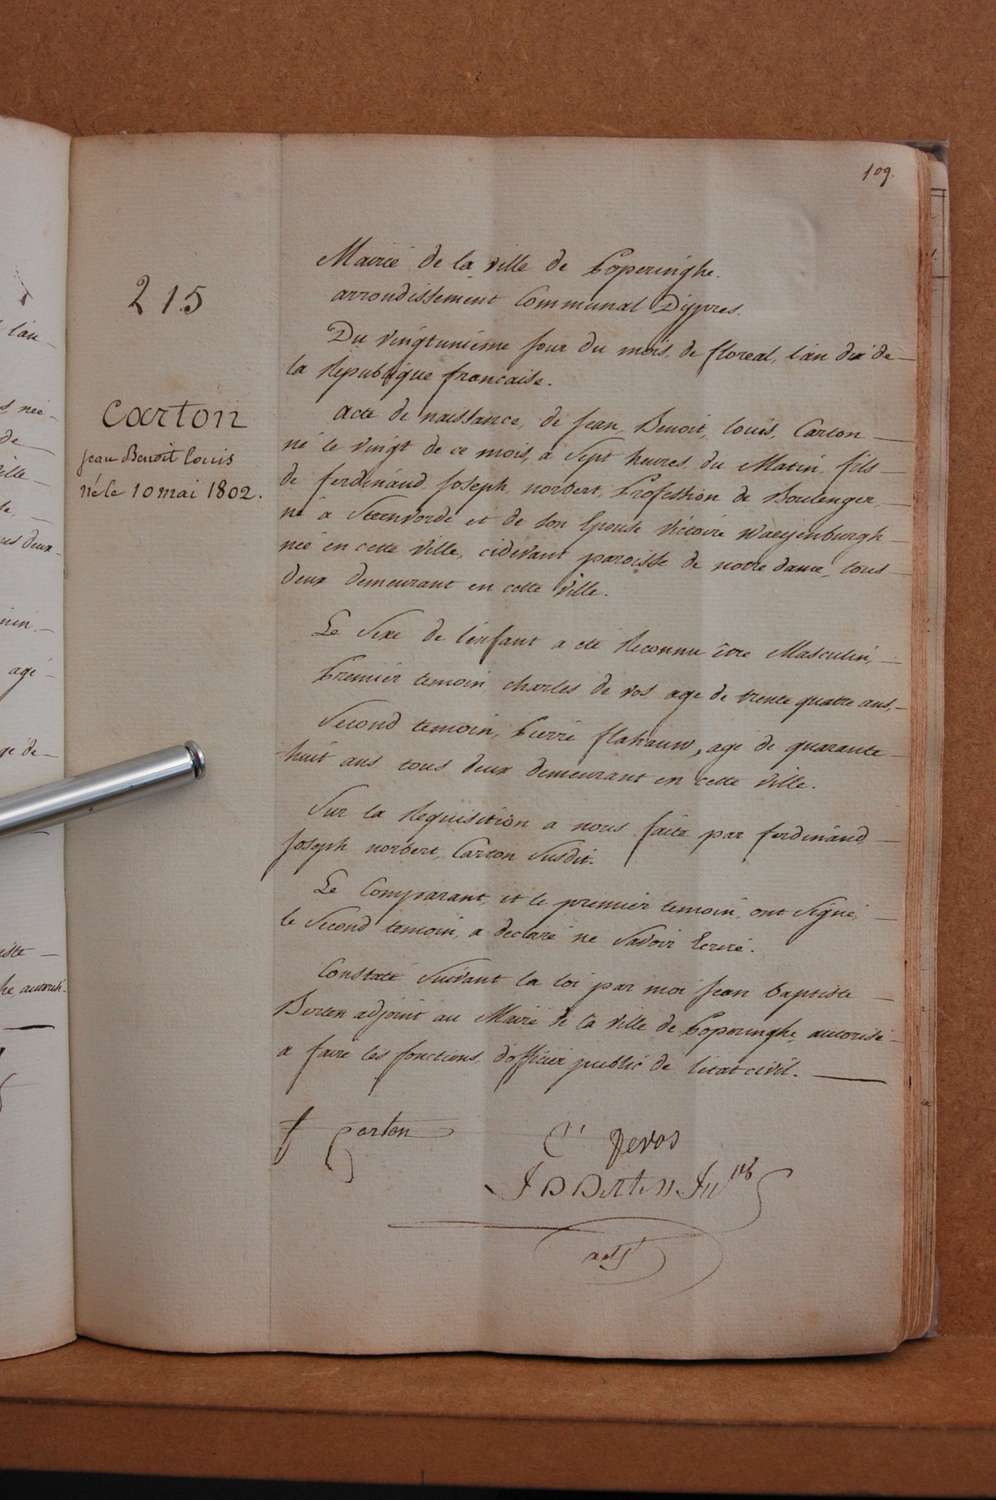 109.
215
Carton
Jean Benoît Louis
né le 10 mai 1802.
Mairie de la ville de Poperinghe.
arrondissement Communal Dÿpres.
Du vingtunieme jour du mois, de floreal, l'an dix de
la Republique francaise.
acte de naissance, de Jean, Benoit, louis, Carton
né le vingt de ce mois, à Sept heures, du Matin, fils
de ferdinand Joseph, norbert, Profession de Boulenger,
né a Steenvorde et de son Epouse Victoire waeyenburgh
neé en cette ville, cidevant paroisse de notre dame, tous
deux demeurant en cette ville.
Le Sexe de l'enfant a eté Reconnu être Masculin,
Premier temoin, charles de vos age de trente quatre ans,
Second temoin, Pierre flahauw, agé de quarante
huit ans tous deux demeurant en cette ville.
Sur la Requisition a nous faite par ferdinand
Joseph norbert, Carton Susdit.
Le Comparant, et le premier temoin, ont signé,
le Second temoin, a declaré ne Savoir Ecrire.
Constaté Suivant la loi par moi Jean baptiste
Berten adjoint au Maire de la ville de Poperinghe, autorisé
a faire les fonctions, d'officier public de l'etat civil.
f Carton
C Devos
J B Berten
adj
l'an
née
de
ville
deux
agé
age de